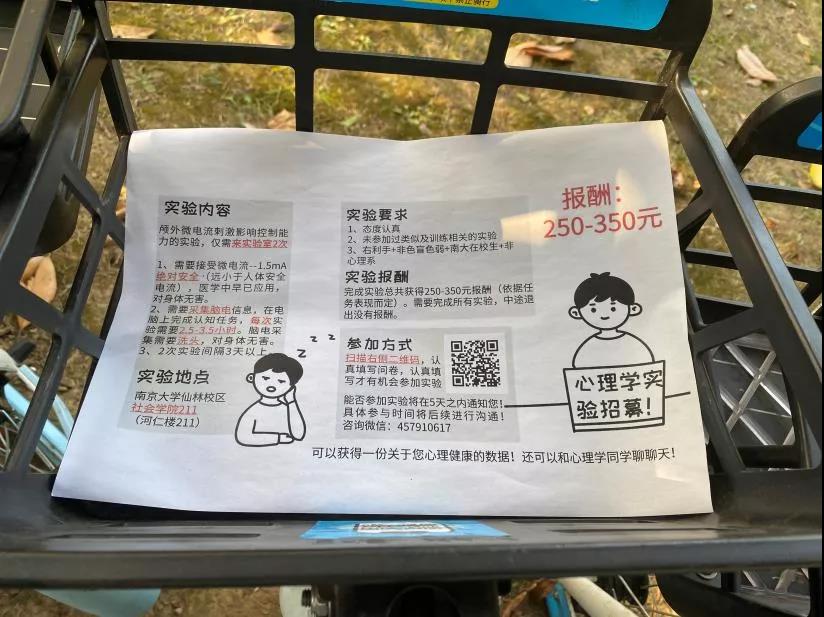 禁止骑行
实验内容
颅外微电流刺激影响控制能
力的实验，仅需来实验室2次
1、需要接受微电流--1.5mA
绝对安全（远小于人体安全
电流），医学中早已应用，
对身体无害。
2、需要采集脑电信息，在电
脑上完成认知任务，每次实
验需要2.5-3.5小时。脑电采
集需要洗头，对身体无害。
3、2次实验间隔3天以上
实验地点
南京大学仙林校区
社会学院211
（河仁楼211）
z z z
实验要求
1、态度认真
2、未参加过类似及训练相关的实验
3、右利手+非色盲色弱+南大在校生+非
心理系
实验报酬
完成实验总共获得250-350元报酬（依据任
务表现而定）。需要完成所有实验，中途退
出没有报酬。
参加方式
扫描右侧二维码，认
真填写问卷，认真填
写才有机会参加实验
能否参加实验将在5天之内通知您！
具体参与时间将后续进行沟通！
咨询微信：457910617
报酬：
250-350元
心理学实
验招募！
可以获得一份关于您心理健康的数据！还可以和心理学同学聊聊天！